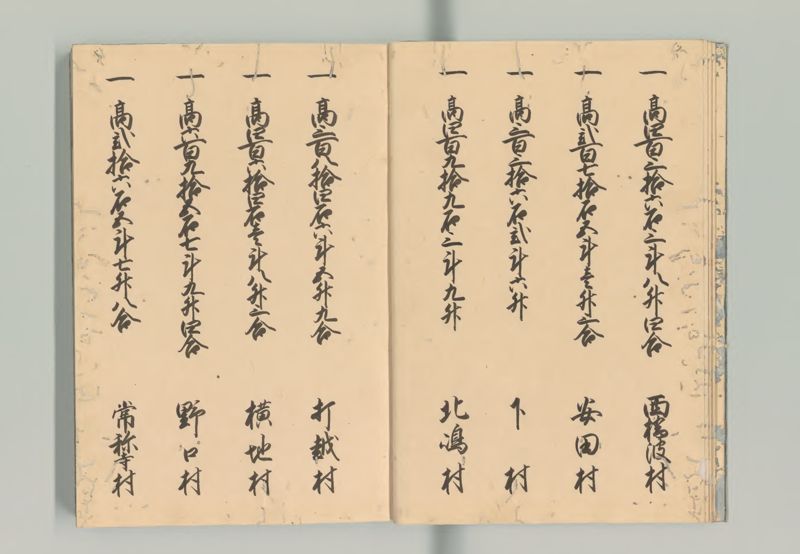 一 高四百三拾六石三斗八升四合 西橋波村
一 高弐百七拾石五斗壱升三合 安田村
一 高三百三拾六石弐斗六升 下村
一 高四百九拾九石三斗九升 北嶋村
一 高三百八拾四石六斗五升九合 打越村
一 高四百六拾四石壱斗八升三合 横地村
一 高六百九拾五石七斗九升四合 野口村
一 高弐拾六石五斗七升八合 常称寺村